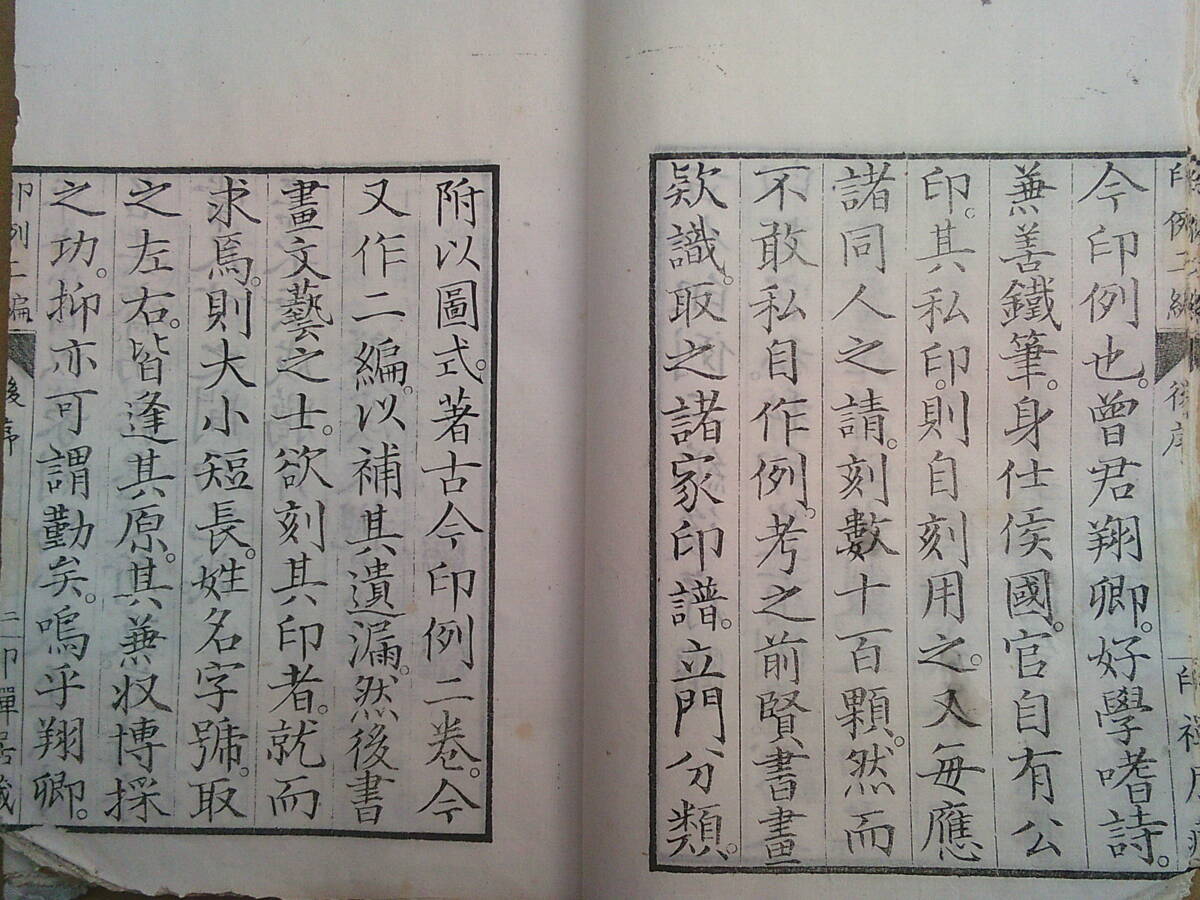 今印例也。曾君翔卿。好學嗜詩。
兼善鐵筆。身仕侯國。官自有公
印。其私印。則自刻用之。又每應
諸同人之請。刻數十百顆。然而
不敢私自作例。考之前賢書畫
欵識。取之諸家印譜。立門分類。
附以圖式。著古今印例二卷。今
又作二編。以補其遺漏。然後書
畫文藝之士。欲刻其印者。就而
求焉。則大小短長。姓名字號。取
之左右。皆逢其原。其兼収博採
之功。抑亦可謂勤矣。嗚乎翔卿。
印例二編 後序